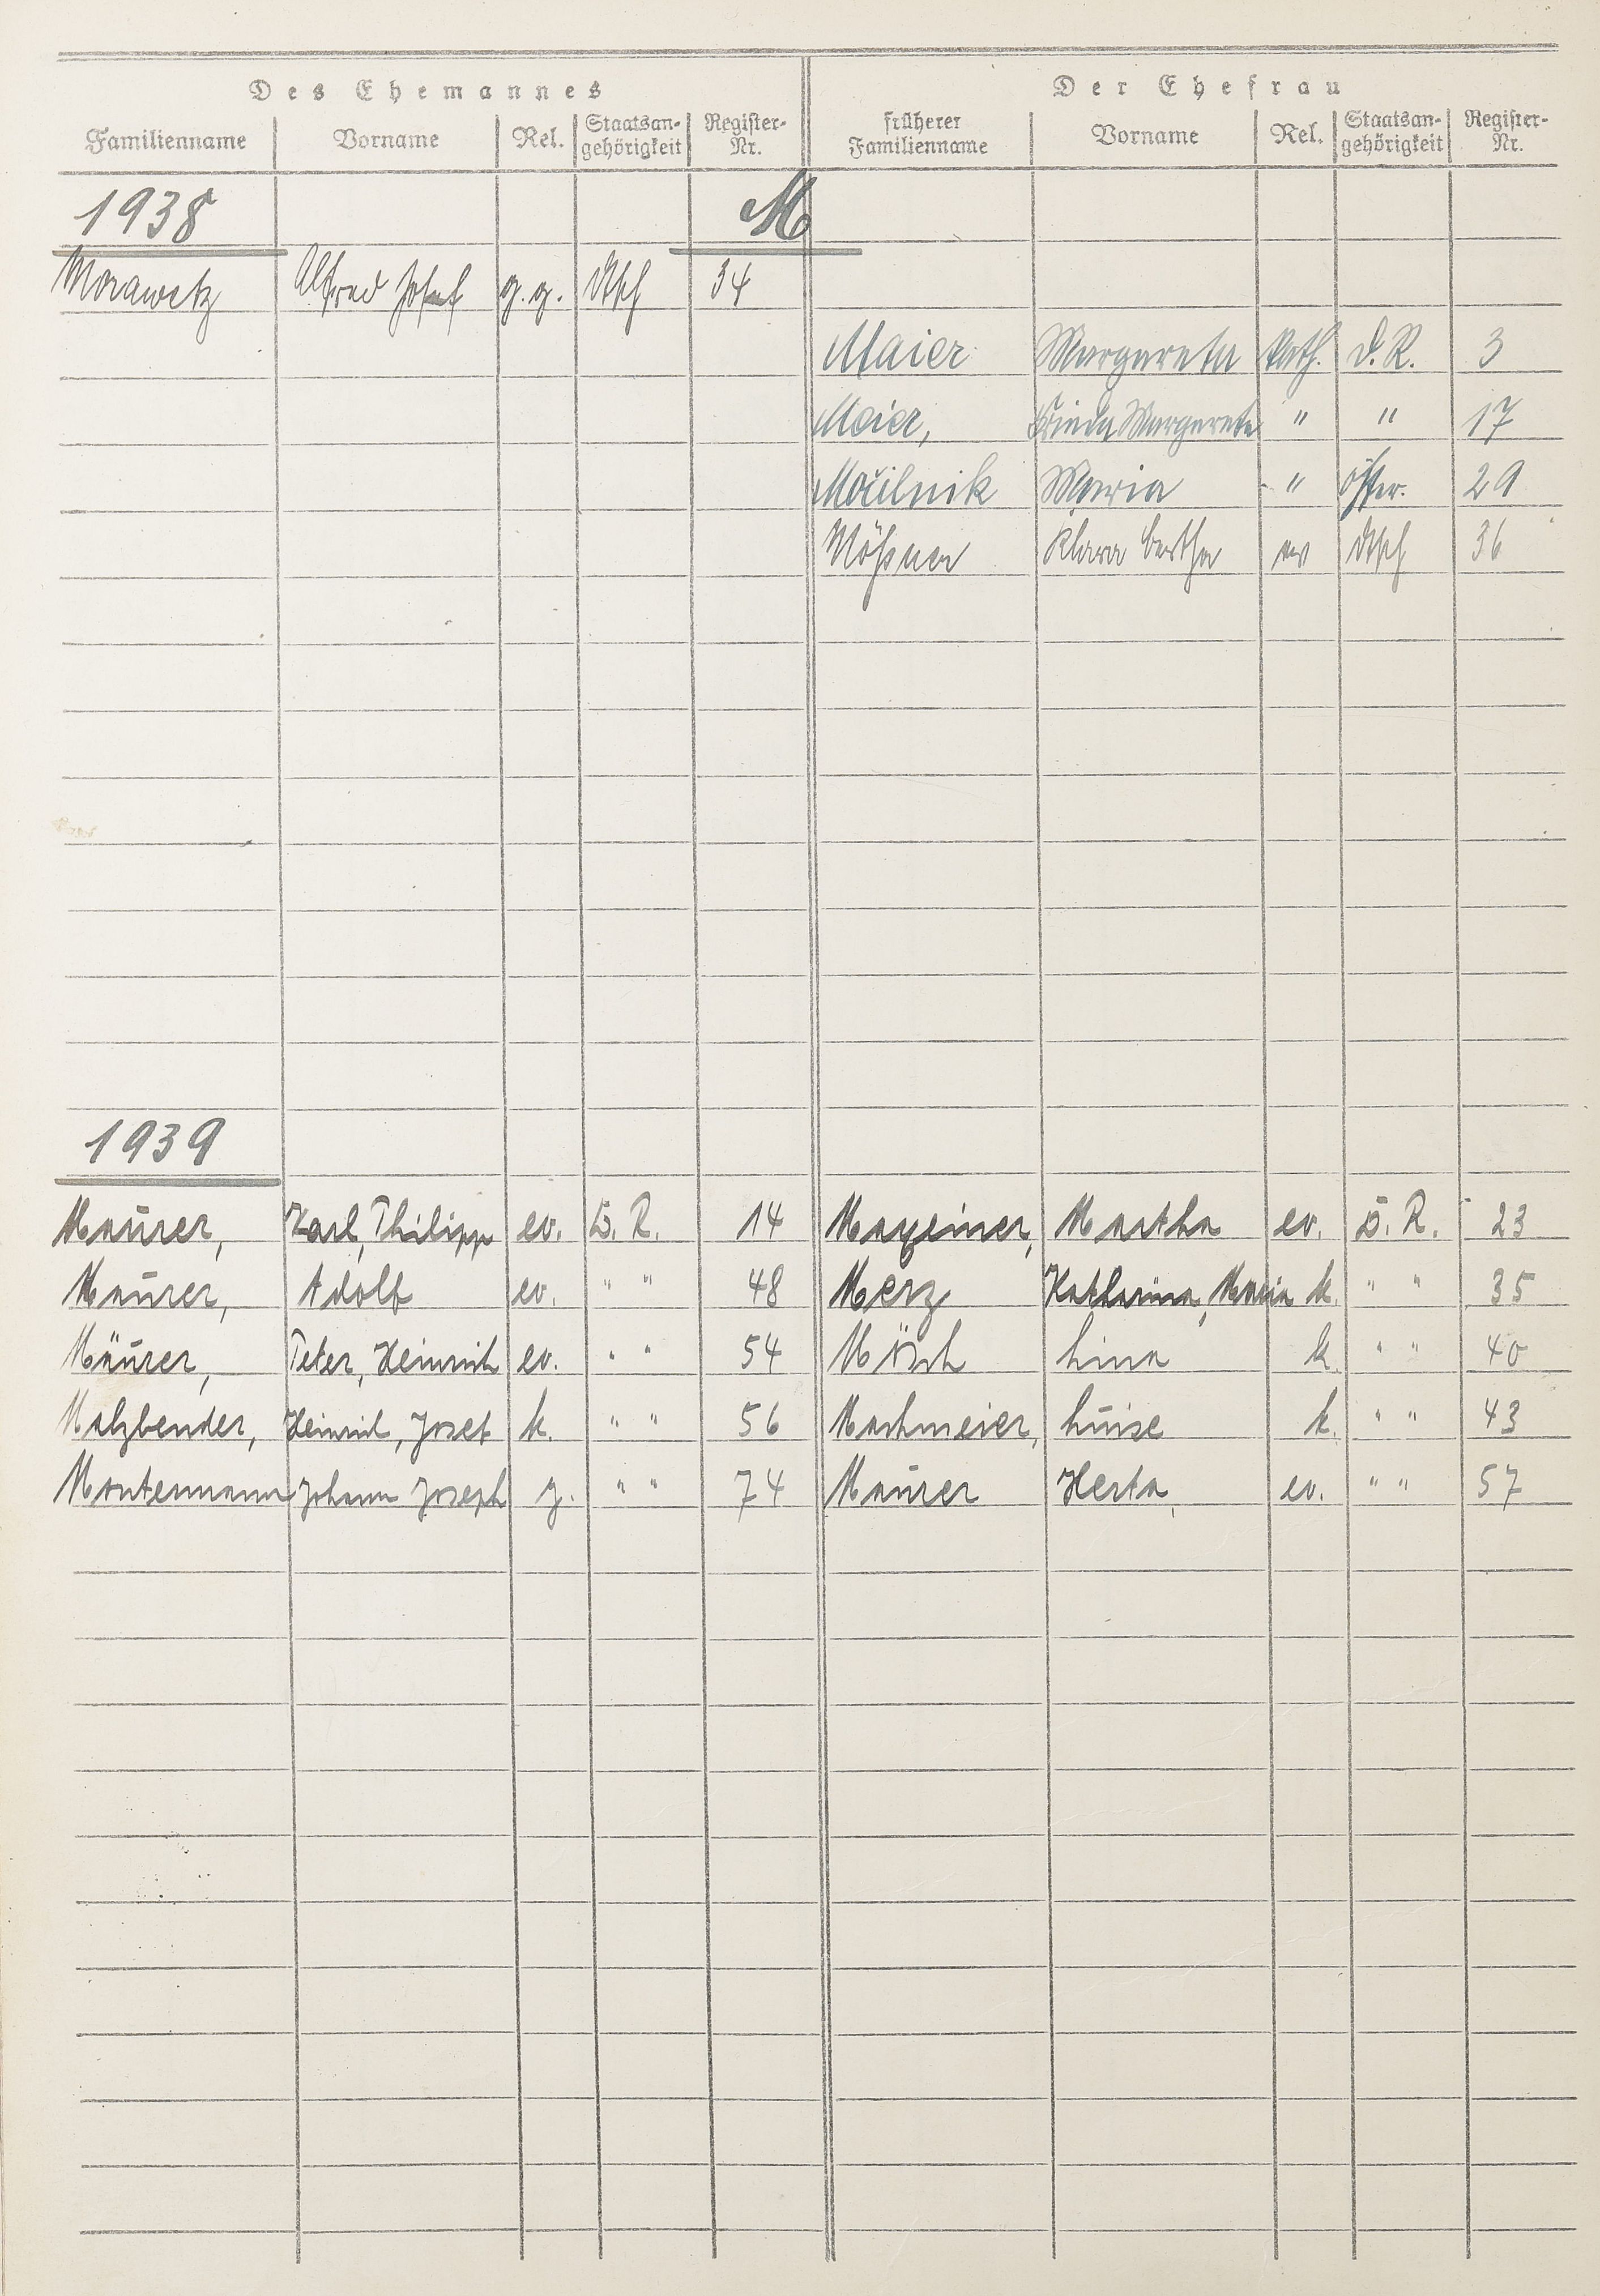 Des Ehemannes Der Ehefrau
Familienname Vorname Rel. Staatsan-gehörigkeit Register-Nr. früherer Familienname Vorname Rel. Staatsan-gehörigkeit Register-Nr.
1938 M
Morawetz Alfred Josef g. g. dtsch 34
Maier Margareta kath. D. R. 3
Meier, Frieda Margareta " " 17
Močilnik Maria " öster. 29
Mößner Klara Bertha ev dtsch 36
1939
Maurer, Karl, Philipp ev. D. R. 14 Mayeiner, Martha ev. D. R. 23
Maurer, Adolf ev. " " 48 Merz Katharina, Maria k. " " 35
Mäurer, Peter, Heinrich ev. " " 54 Mösch Lina k. " " 40
Malzbender, Heinrich, Josef k. " " 56 Machmeier, Luise k. " " 43
Montermann Johann Joseph g. " " 74 Maurer Herta ev. " " 57